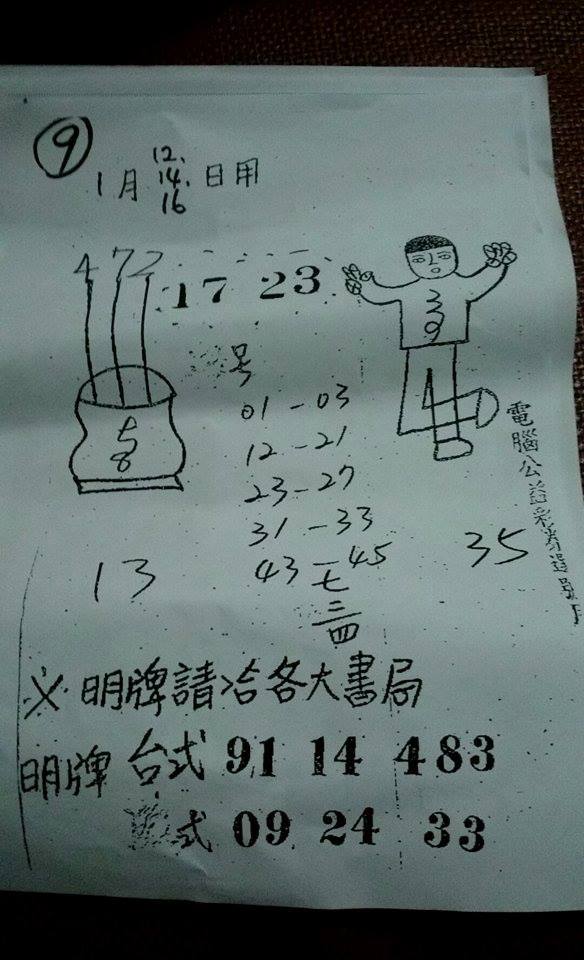 9
12.
1月 14. 日用
16
472
17 23
39
号
01-03
12-21
5
8
23-27
31-33
43-45
13
35
七
三
四
電腦公益彩券選號
※明牌請洽各大書局
明牌 台式 91 14 483
式 09 24 33